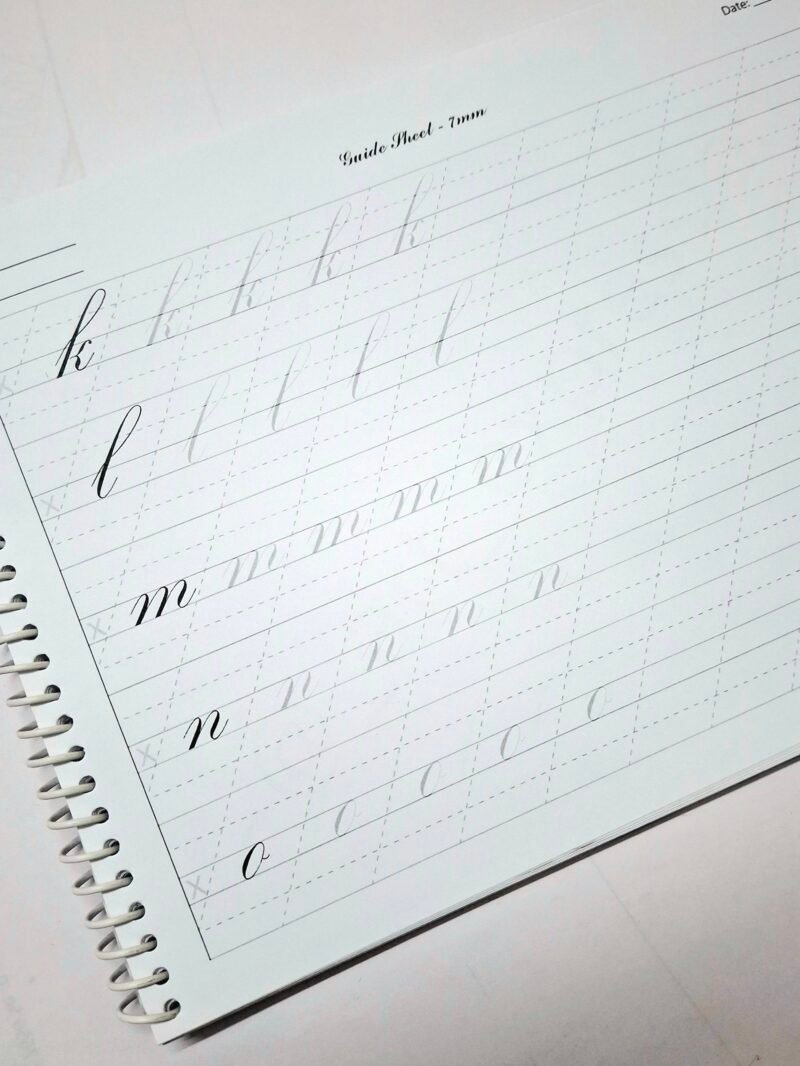 Date:
Guide Sheet - 7mm
k k k k k
x l l l l l
x m m m m m
x n n n n n
x o o o o o
x